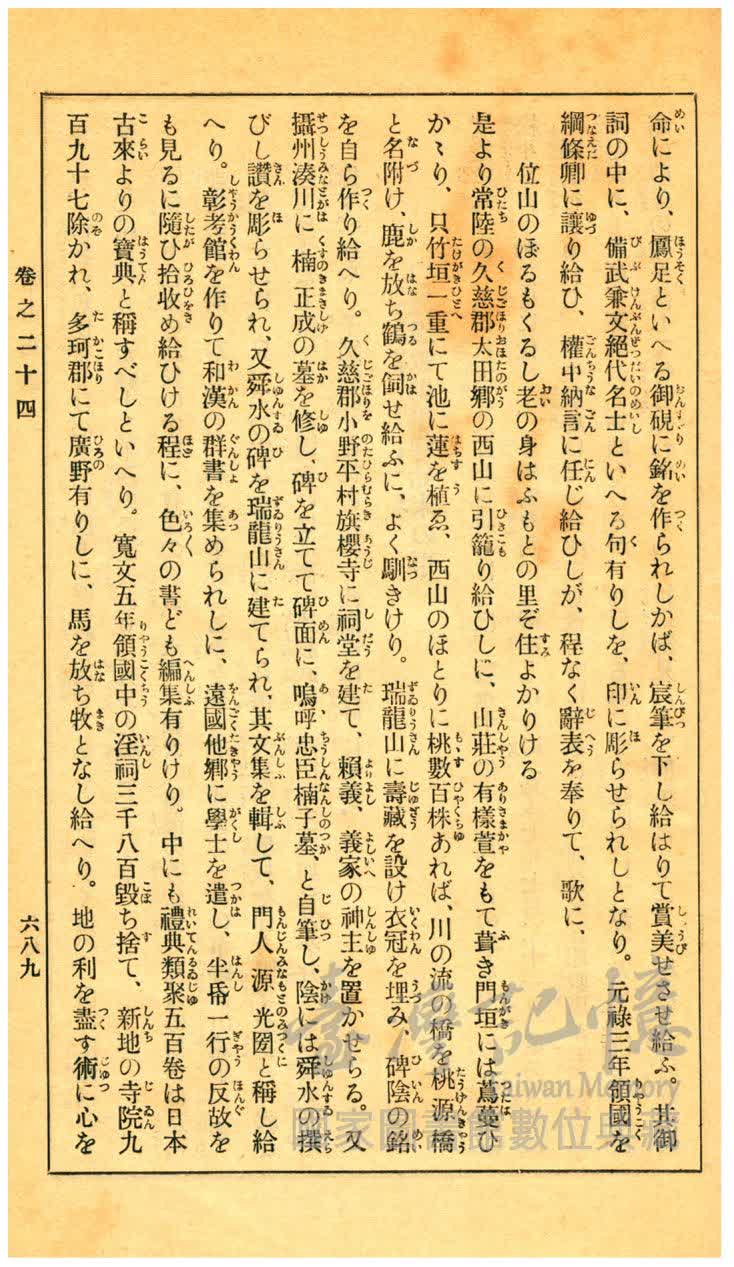 命により、鳳足といへる御硯に銘を作られしかば、宸筆を下し給はりて賞美せさせ給ふ。其御
詞の中に、備武兼文絕代名士といへる句有りしを、印に彫らせられしとなり。元祿三年領國を
綱條卿に讓り給ひ、權中納言に任じ給ひしが、程なく辭表を奉りて、歌に、
位山のぼるもくるし老の身はふもとの里ぞ住よかりける
是より常陸の久慈郡太田鄕の西山に引籠り給ひしに、山莊の有樣萱をもて葺き門垣には蔦蔓ひ
かゝり、只竹垣一重にて池に蓮を植ゑ、西山のほとりに桃數百株あれば、川の流の橋を桃源橋
と名附け、鹿を放ち鶴を飼せ給ふに、よく馴きけり。瑞龍山に壽藏を設け衣冠を埋み、碑陰の銘
を自ら作り給へり。久慈郡小野平村旗櫻寺に祠堂を建て、賴義、義家の神主を置かせらる。又
攝州湊川に楠正成の墓を修し、碑を立てて碑面に、嗚呼忠臣楠子墓、と自筆し、陰には舜水の撰
びし讚を彫らせられ、又舜水の碑を瑞龍山に建てられ、其文集を輯して、門人源光圀と稱し給
へり。彰考館を作りて和漢の群書を集められしに、遠國他鄕に學士を遣し、半帋一行の反故を
も見るに隨ひ拾收め給ひける程に、色々の書ども編集有りけり。中にも禮典類聚五百卷は日本
古來よりの寶典と稱すべしといへり。寬文五年領國中の淫祠三千八百毀ち捨て、新地の寺院九
百九十七除かれ、多珂郡にて廣野有りしに、馬を放ち牧となし給へり。地の利を盡す術に心を
卷之二十四
六八九
臺灣記憶
Taiwan Memory
國家圖書館數位典藏